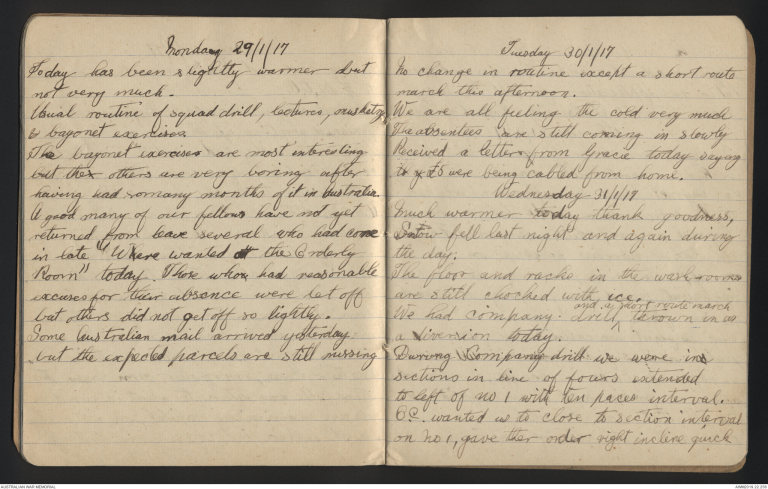 Monday 29/1/17
Today has been slightly warmer but
not very much.
Usual routine of squad drill, lectures, musketry
& bayonet exercises.
The bayonet exercises are most interesting
but the others are very boring after
having had so many months of it in Australia.
A good many of our fellows have not yet
returned from leave several who had come
in late "Where wanted at the Orderly
Room" today. Those whom had reasonable
excuses for their absence were let off
but others did not get off so lightly.
Some Australian mail arrived yesterday
but the expected parcels are still missing
Tuesday 30/1/17
No change in routine except a short route
march this afternoon.
We are all feeling the cold very much
The absentees are still coming in slowly
Received a letter from Gracie today saying
£5 were being cabled from home.
Wednesday 31/1/17
Much warmer today thank goodness,
Snow fell last night and again during
the day.
The floor and racks in the wash rooms
are still chocked with ice.
and a short route march
We had company drill, thrown in as
a diversion today.
During Company drill we were in
sections in line of fours extended
to left of no 1 with ten paces interval.
O.C. wanted us to close to section interval
on no 1, gave ther order right incline quick
AUSTRALIAN WAR MEMORIAL